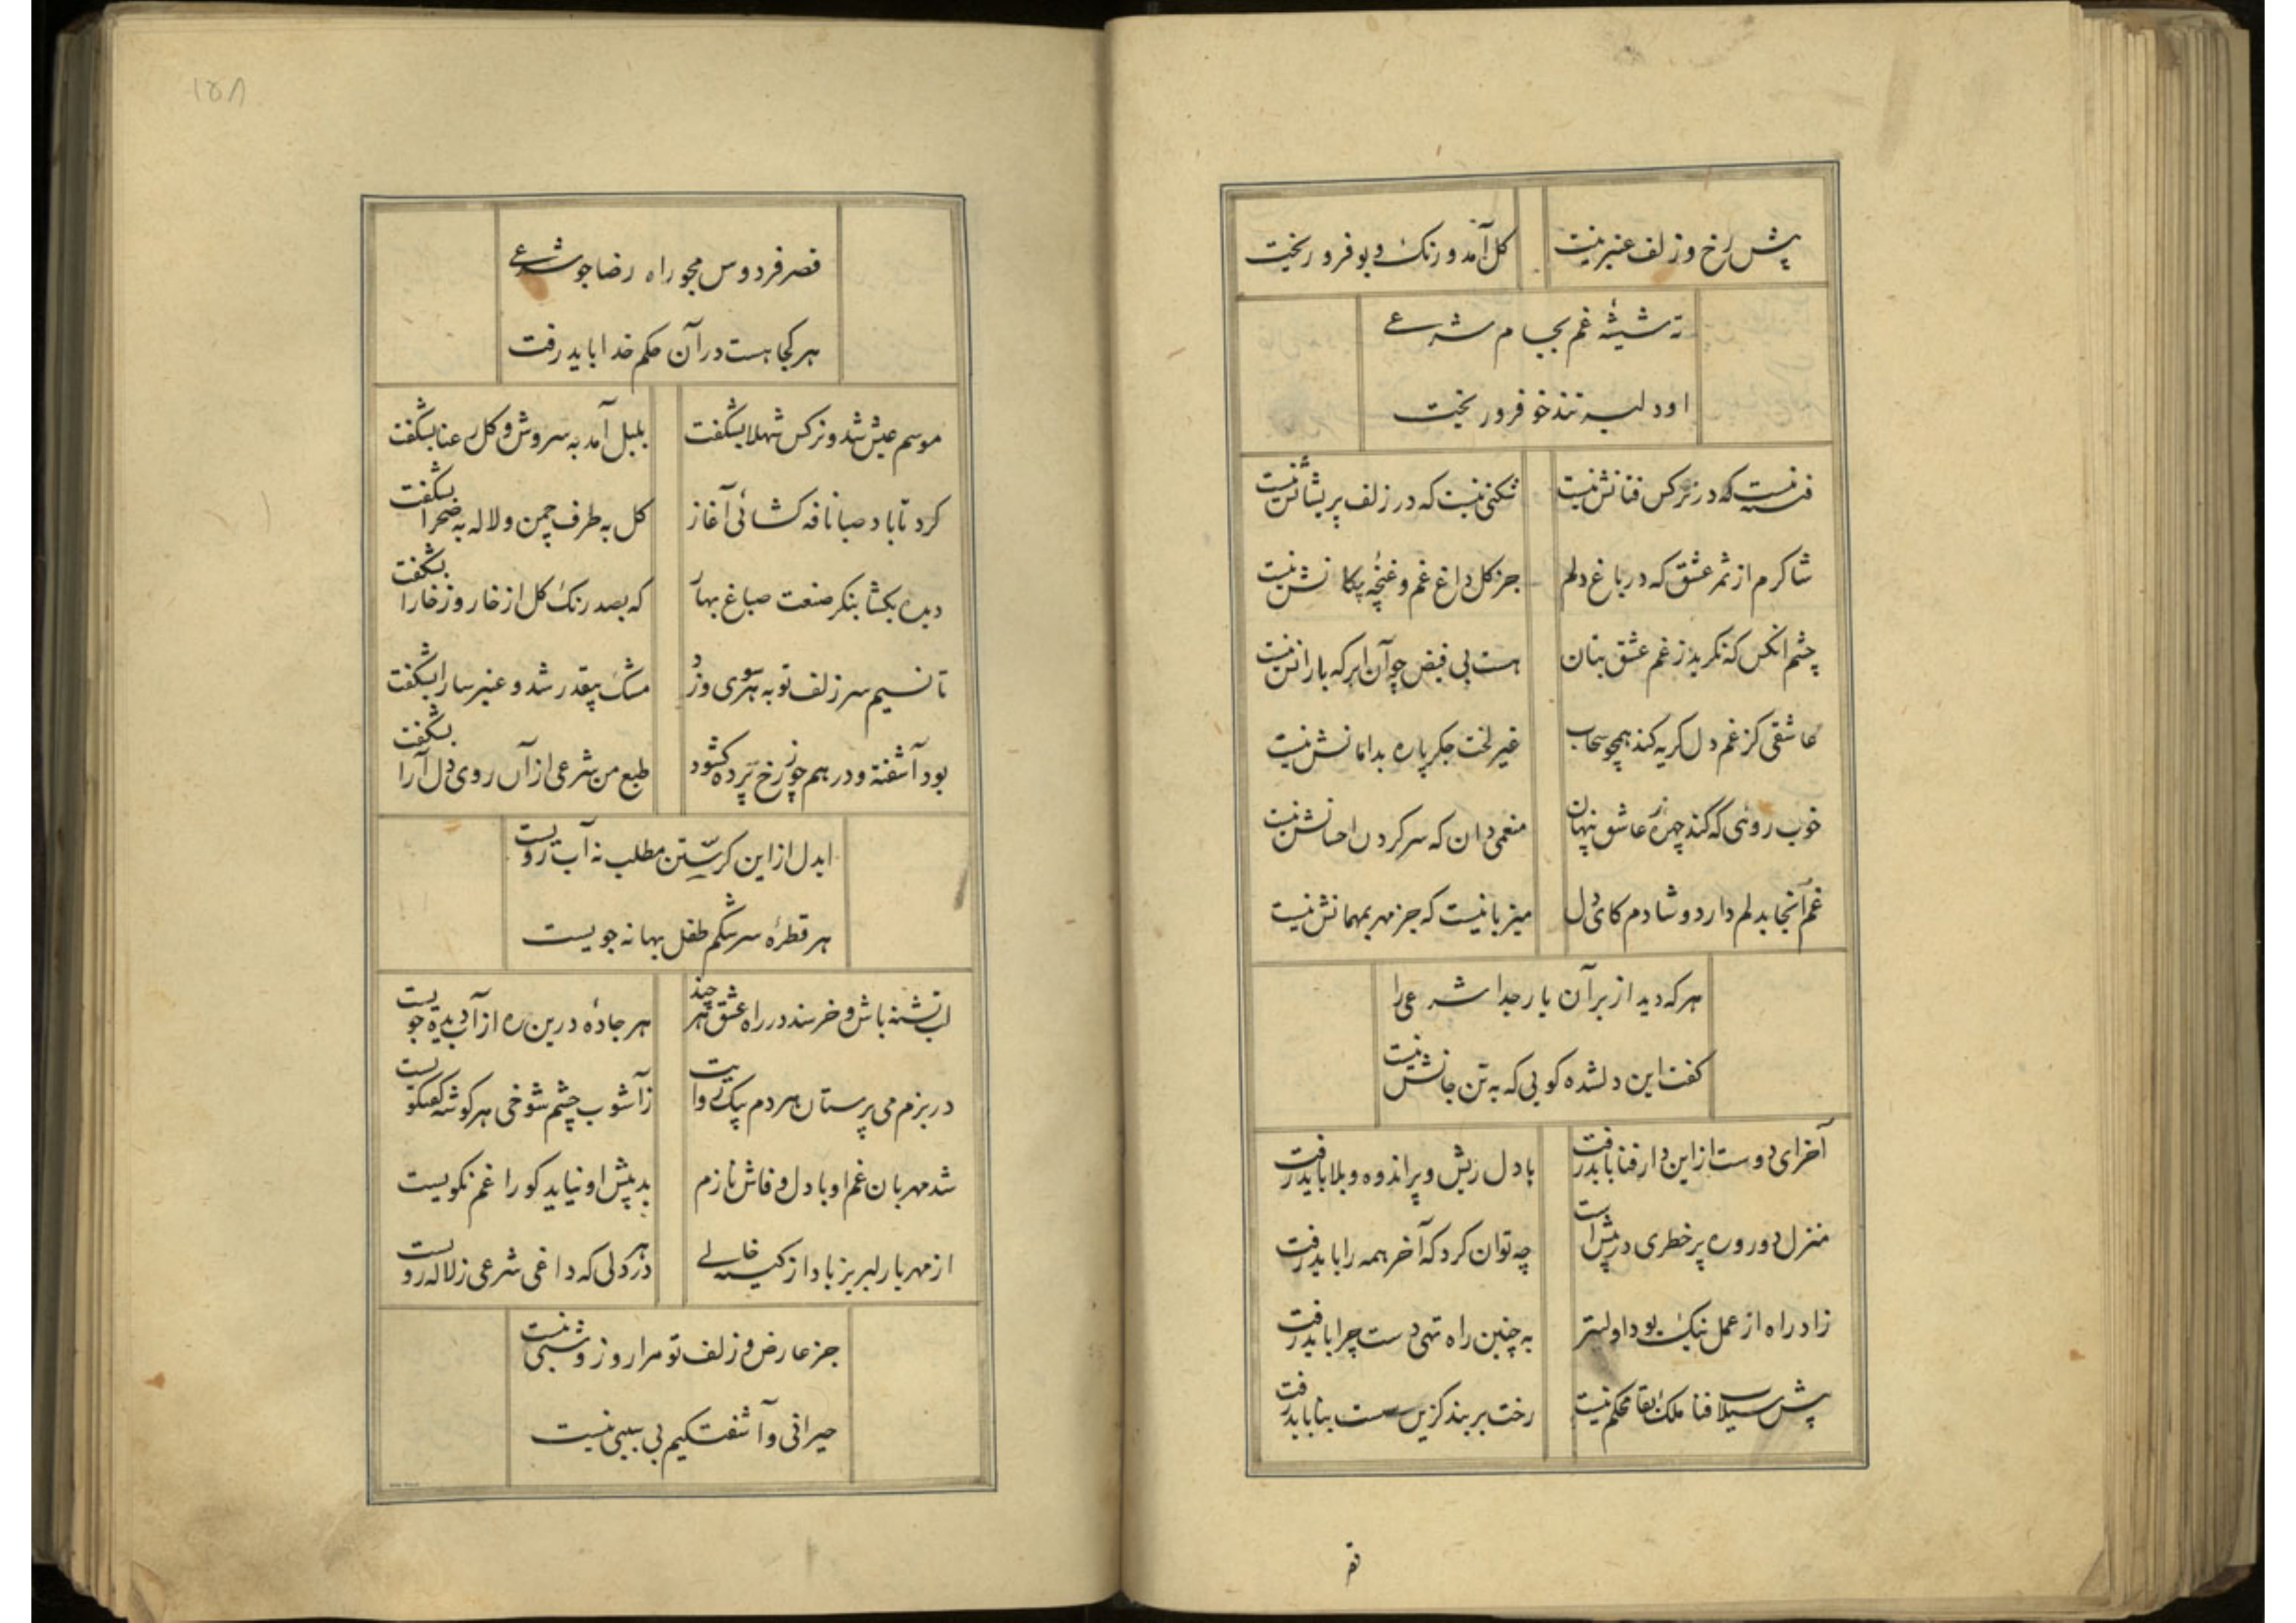 پیش رخ و زلف عنبرینت
کل آمد و رنک و بو فرو ریخت
ته شیشهٔ غم بجام شرعی
او دلبر تندخو فرو ریخت
فتنه نیست که در نرکس فتانش نیست
شکنی نیست که در زلف پریشانش نیست
شاکرم از ثمر عشق که در باغ دلم
جز کل داغ غم و غنچهٔ پیکانش نیست
چشم انکس که نکرید ز غم عشق بتان
هست بی فیض چو آن ابر که بارانش نیست
عاشقی کز غم دل کریه کند همچو سحاب
غیر لخت جکر پاره بدامانش نیست
خوب روئی که کند چهره ز عاشق پنهان
منعمی دان که سر کردن احسانش نیست
غم آنجا بدلم دارد و شادم کای دل
میزبانیست که جز مهر بمهمانش نیست
هر که دید از بر آن یار جدا شرعی را
کفت این دلشده کویی که به تن جانش نیست
آخر ای دوست از این دار فنا باید رفت
با دل ریش و پر اندوه و بلا باید رفت
منزل دور و ره پر خطری در پیش است
چه توان کرد که آخر همه را باید رفت
زاد راه از عمل نیک بود اولیتر
به چنین راه تهی دست چرا باید رفت
پیش سیلاب فنا ملک بقا محکم نیست
رخت بر بند کزین سست بنا باید رفت
قصر
۱۵۸
قصر فردوس مجو راه رضا جو شرعی
هر کجا هست در آن حکم خدا باید رفت
موسم عیش شد و نرکس شهلا بشکفت
بلبل آمد به سروش و کل رعنا بشکفت
کرد تا باد صبا نافه کشائی آغاز
کل به طرف چمن و لاله به صحرا بشکفت
دیده بکشا بنکر صنعت صباغ بهار
که بصد رنک کل از خار و ز خارا بشکفت
تا نسیم سر زلف تو به هر سوی وزد
مشک بیقدر شد و عنبر سارا بشکفت
بود آشفته و در هم چو ز رخ پرده کشود
طبع من شرعی از آن روی دل آرا بشکفت
ایدل از این کریستن مطلب نه آب رویست
هر قطرهٔ سرشکم طفل بهانه جویست
لب تشنه باش و خرسند در راه عشق هر چند
هر جادهٔ درین ره از آب دیده جویست
در بزم می پرستان هر دم پیک روایت
زآشوب چشم شوخی هر کوشه کفتکویست
شد مهربان غم او با دل وفاش نازم
بد پیش او نیاید کو را غم نکویست
از مهر یار لبریز باد از کینه خالی
هر در دلی که داغی شرعی ز لاله رویست
جز عارض و زلف تو مرا روز و شبی نیست
حیرانی و آشفتکیم بی سببی نیست